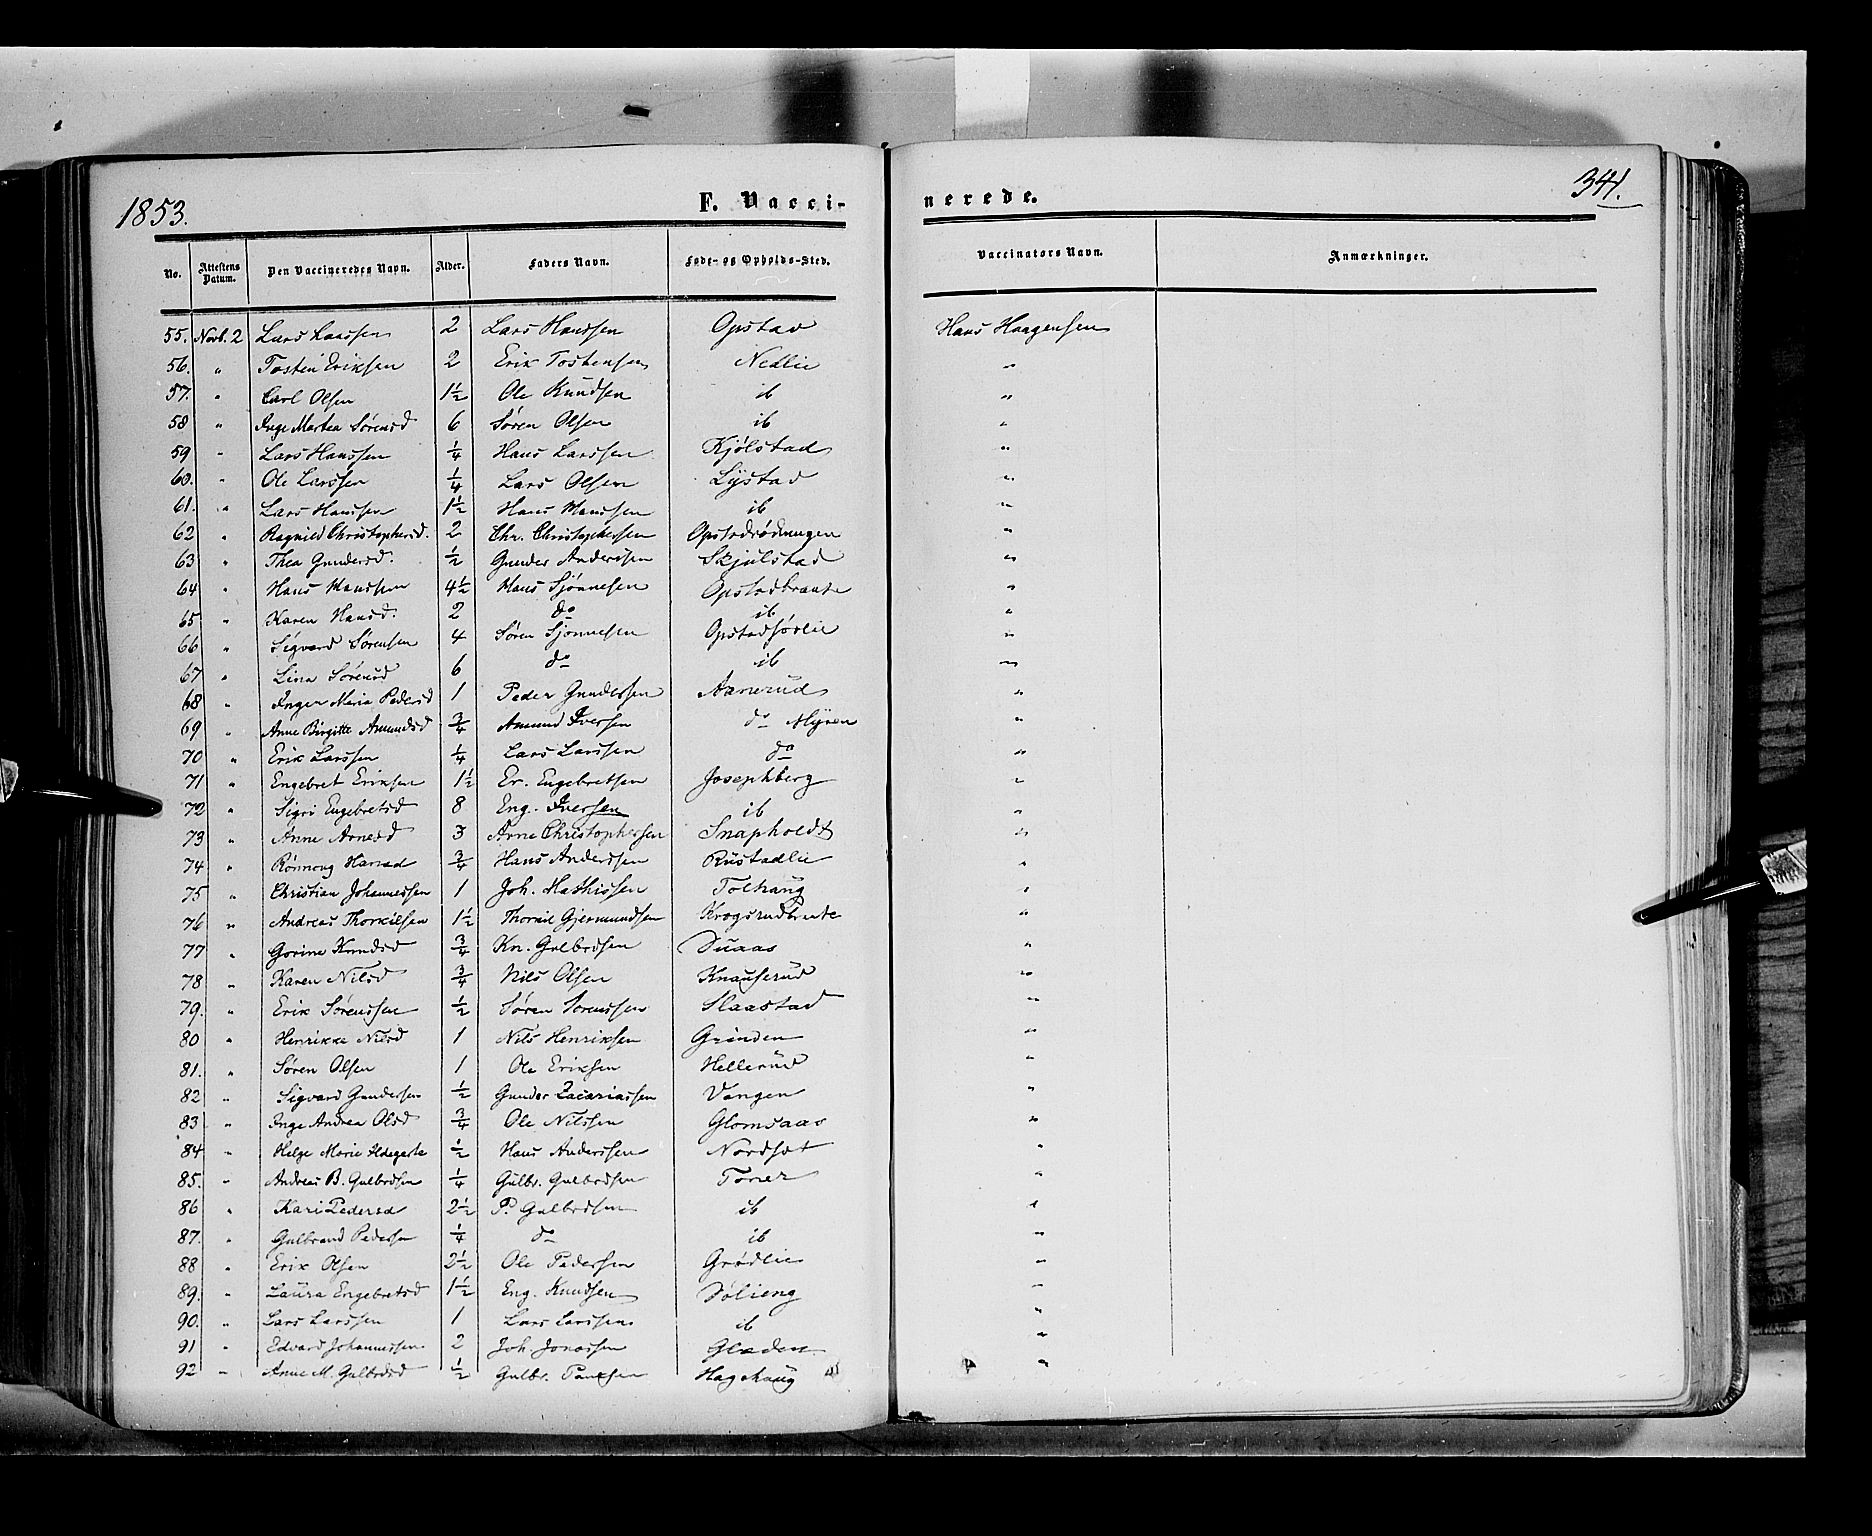 1853. F. Vaccinerede. 341.
No. Attestens Datum. Den Vaccineredes Navn. Alder. Faders Navn. Føde- og Opholds-Sted. Vaccinators Navn. Anmærkninger.
55. Novb. 2 Lars Larssen 2 Lars Hanssen Opstad Hans Haagensen
56. " Tosten Eriksen 2 Erik Tostensen Nedlie "
57. " Carl Olsen 1½ Ole Knudsen ib "
58 " Inge Martea Sørensd 6 Søren Olsen ib "
59 " Lars Hanssen ¼ Hans Larssen Kjølstad "
60. " Ole Larssen ¼ Lars Olsen Lystad "
61. " Lars Hanssen 1½ Hans Hanssen ib "
62 " Ragnild Christophersd. 2 Chr. Christophersen Opstadrødningen "
63 " Thea Gundersd. ½ Gunder Anderssen Skjulstad "
64 " Hans Hanssen 4½ Hans Sjønnesen Opstadbraate "
65 " Karen Hansd. 2 do ib "
66 " Sigvard Sørensen 4 Søren Sjønnesen Opstadsødlie "
67 " Lina Sørensd 6 do ib "
68 " Inger Maria Pedersd 1 Peder Gunderssen Aanerud "
69 " Anne Birgitte Amundsd ¾ Amund Iversen do Myren "
70 " Erik Larssen ¼ Lars Larssen do "
71 " Engebret Eriksen 1½ Er. Engebretsen Josephberg "
72 " Sigri Engebretsd 8 Eng. Iversen ib "
73 " Anne Arnesd 3 Arne Christophersen Snapholdt "
74 " Rønnoug Hansd ¾ Hans Anderssen Rustadlie "
75 " Christian Johannessen 1 Joh. Mathissen Tolhaug "
76 " Andreas Thorkilsen 1½ Thorkil Gjermundsen Krogsrudbraate "
77 " Gorine Knudsd ¾ Kn. Gulbrdsen Duaas "
78 " Karen Nilsd ¾ Nils Olsen Knauserud "
79. " Erik Sørenssen ½ Søren Sorenssen Slaastad "
80 " Henrikke Nilsd 1 Nils Henriksen Grinden "
81. " Søren Olsen 1 Ole Eriksen Hellerud "
82 " Sigvard Gundersen ½ Gunder Zacariassen Vangen "
83 " Inge Andrea Olsd ¾ Ole Nilssen Glomsaas "
84 " Helge Marie Ildegerte ½ Hans Anderssen Nordsæt "
85. " Andreas B. Gulbrdsen ¼ Gulbr. Gulbrdsen Toner "
86 " Kari Pedersd 2½ P. Gulbrdsen ib "
87. " Gulbrand Pedersen ¼ do ib "
88 " Erik Olsen 2½ Ole Pedersen Grødlie "
89. " Laura Engebretsd 1½ Eng. Knudsen Dølieng "
90. " Lars Larssen 1 Lars Larssen ib "
91 " Edvard Johannessen 2 Joh. Jonassen Gladen "
92 " Anne M. Gulbrdsd ½ Gulbr. Paulsen Hagehaug "